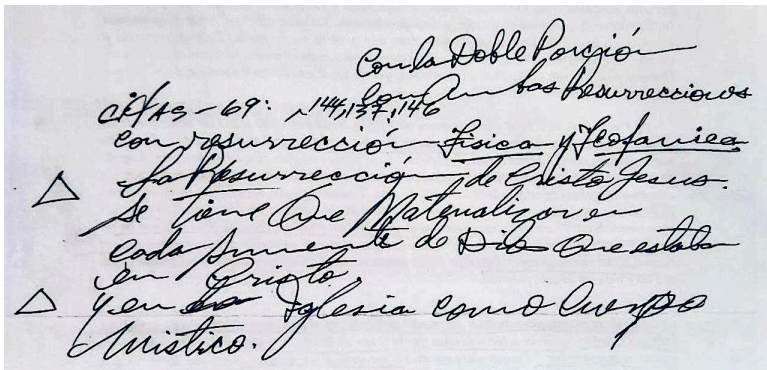 Con la Doble Porción
Con Ambas Resurrecciones
CitAS-69: ~144,137,146
con resurrección Fisica y Teofanica
La Resurrección de Cristo Jesus.
se tiene Que Materializar en
cada simiente de Dios Que estaba
en Cristo.
y en la Iglesia como Cuerpo
Mistico.